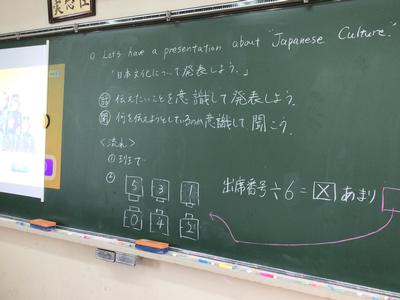 Let's have a presentation about "Japanese Culture."
「日本文化について発表しよう。」
話 伝えたいことを意識して発表しよう。
聞 何を伝えようとしているのか意識して聞こう。
<流れ>
①
②
5 3 1
0 4 2
出席番号÷6=☒あまり